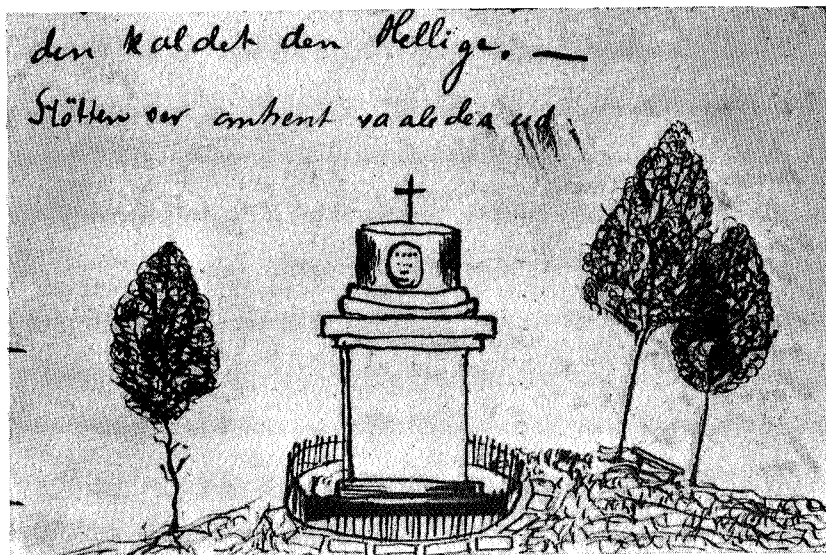 den kaldet den Hellige. —
Stötten ser omtrent saaledes ud: